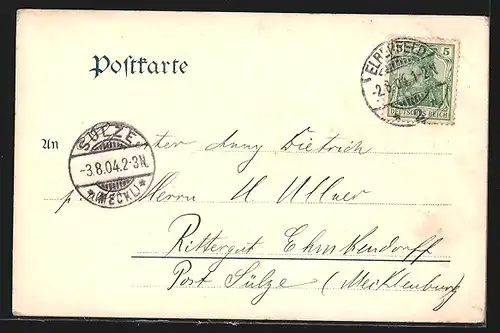 Postkarte
ELBERFELD
-2.8.04.1-2N
5
DEUTSCHES REICH
An
Anny Dietrich
SÜLZE
-3.8.04.2-3N.
*(MECKL)*
p. Herrn H Ullner
Rittergut Ehmkendorff
Post Sülze (Mecklenburg)